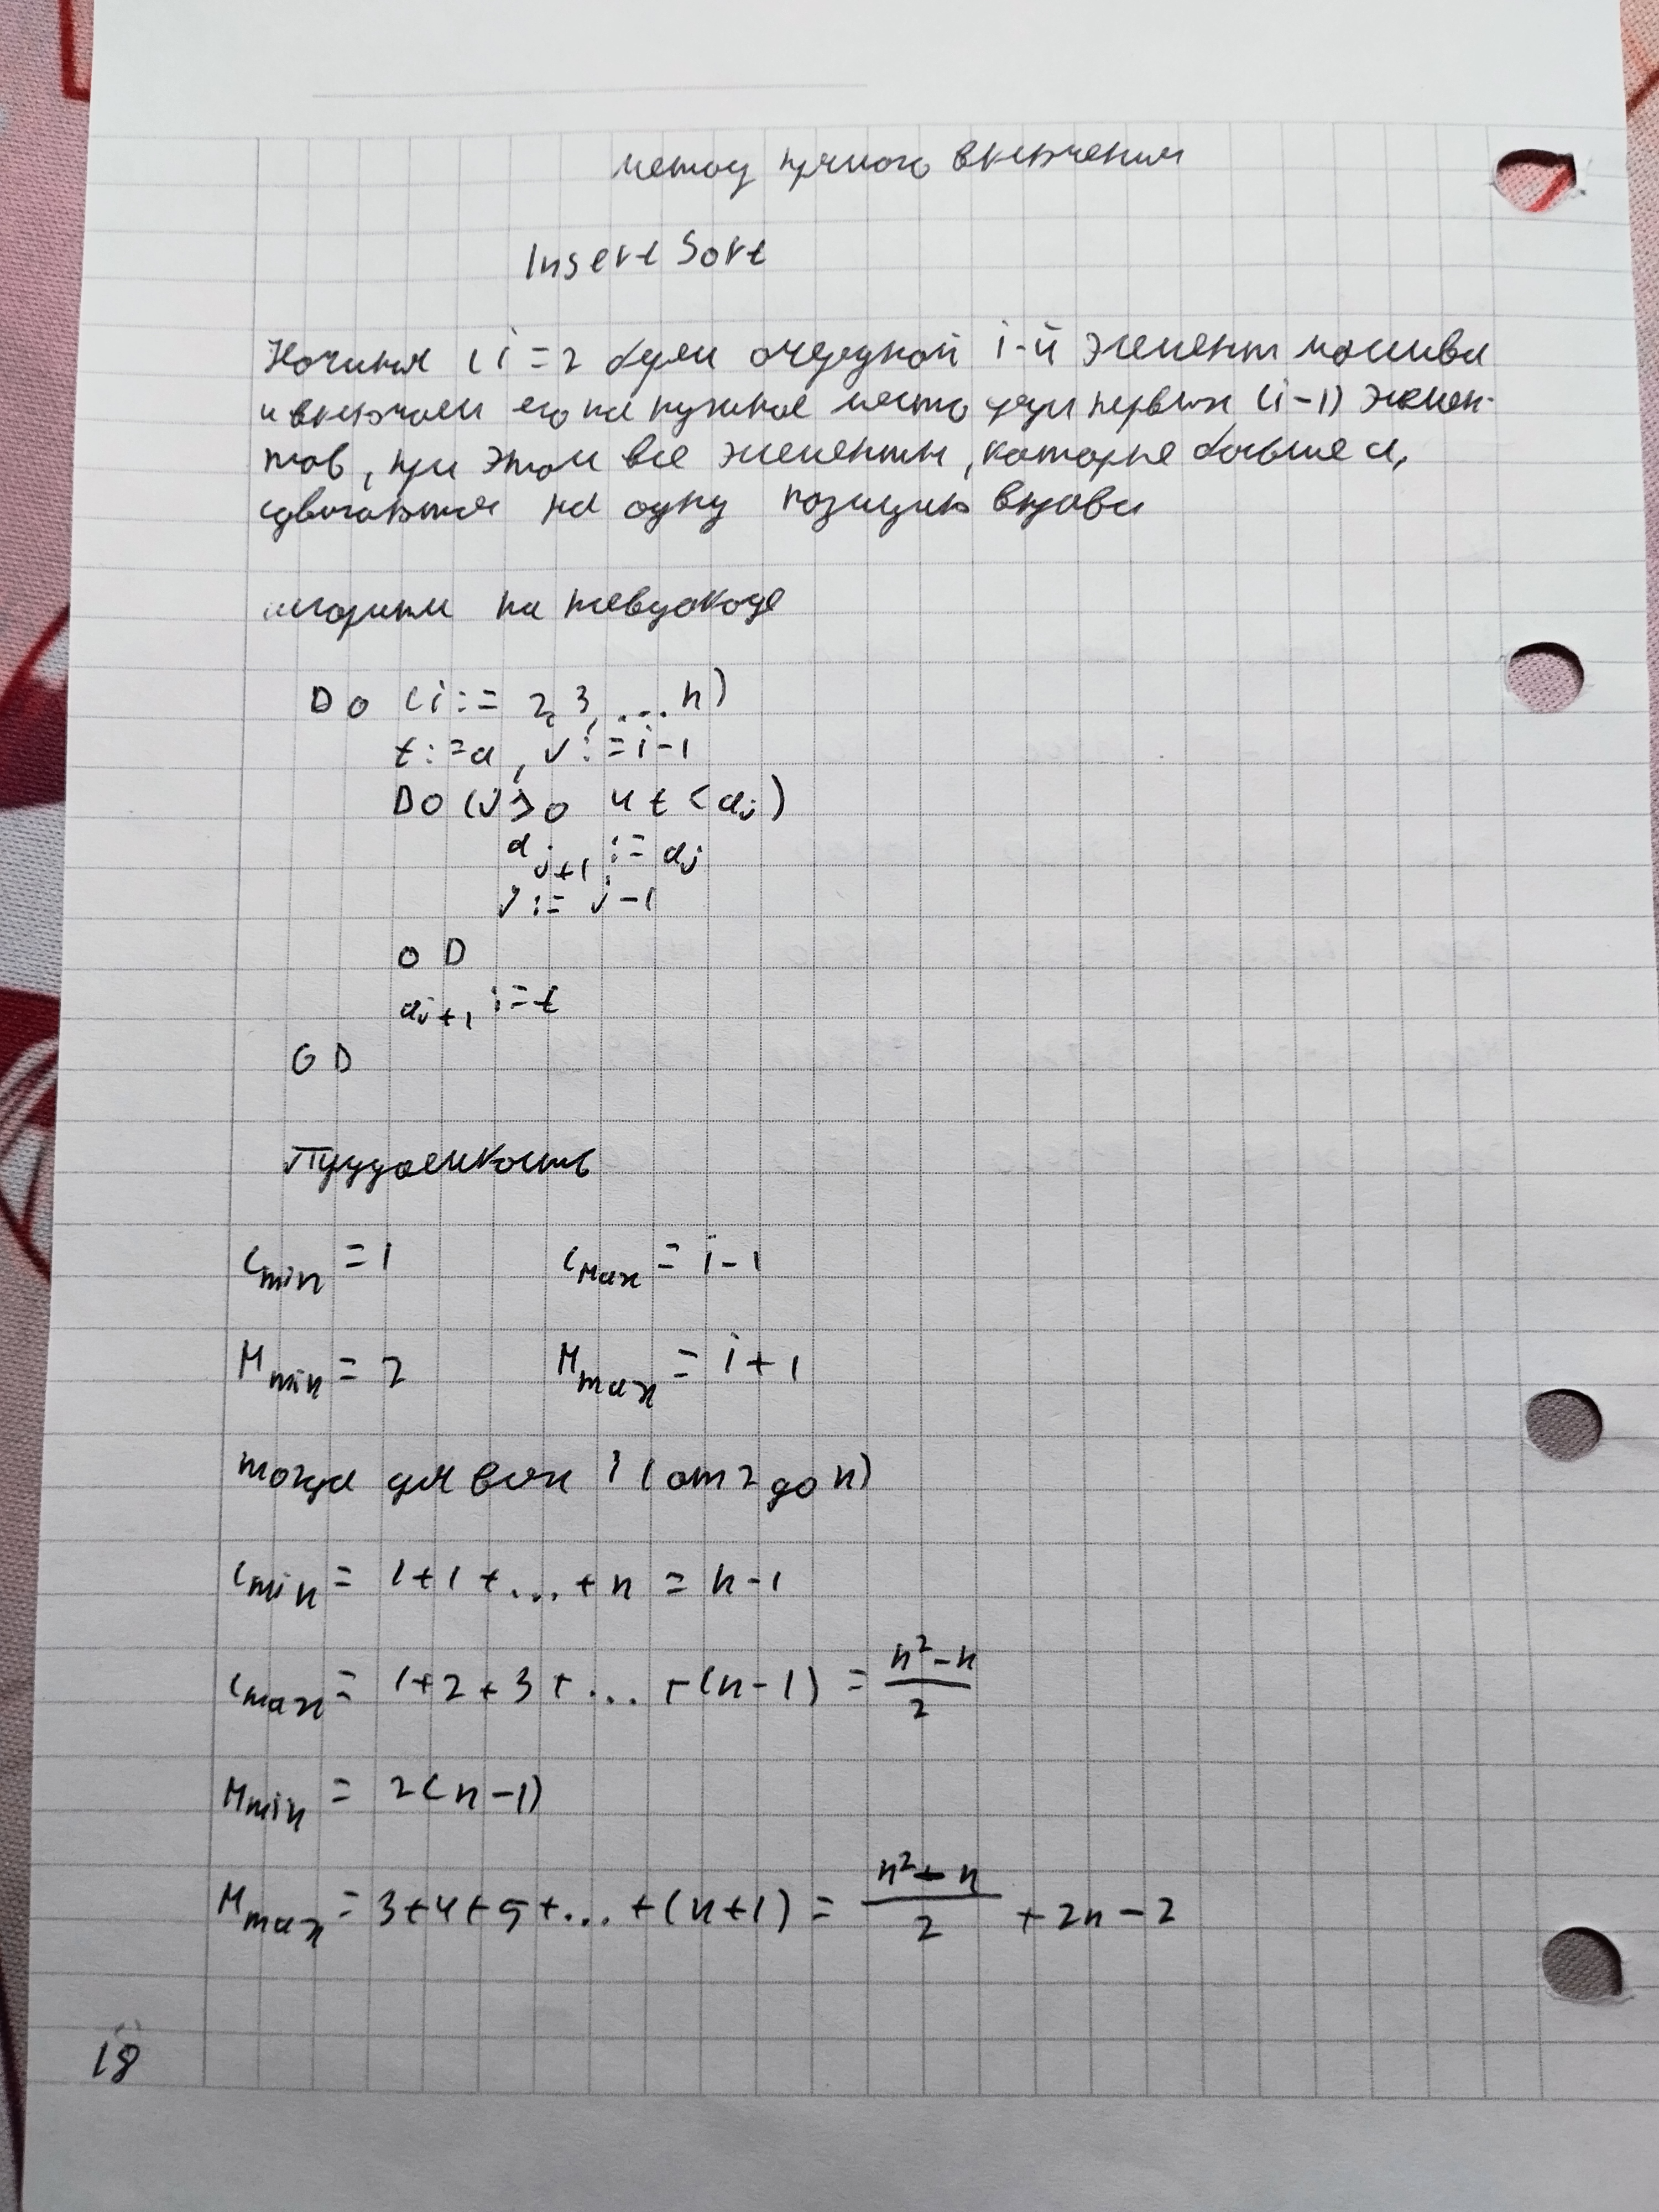 метод прямого включения
Insert Sort
Начиная с i=2 берем очередной i-й элемент массива
и включаем его на нужное место среди первых (i-1) элемен-
тов, при этом все элементы, которые больше a,
сдвигаются на одну позицию вправо
алгоритм на псевдокоде
DO (i := 2, 3, ... n)
t := a, j := i-1
DO (j > 0 и t < aj)
aj+1 := aj
j := j-1
OD
aj+1 := t
OD
Трудоемкость
Cmin = 1 Cmax = i-1
Mmin = 2 Mmax = i+1
тогда для всех i (от 2 до n)
Cmin = 1+1+...+n = n-1
Cmax = 1+2+3+...+(n-1) = (n²-n)/2
Mmin = 2(n-1)
Mmax = 3+4+5+...+(n+1) = (n²-n)/2 + 2n-2
18